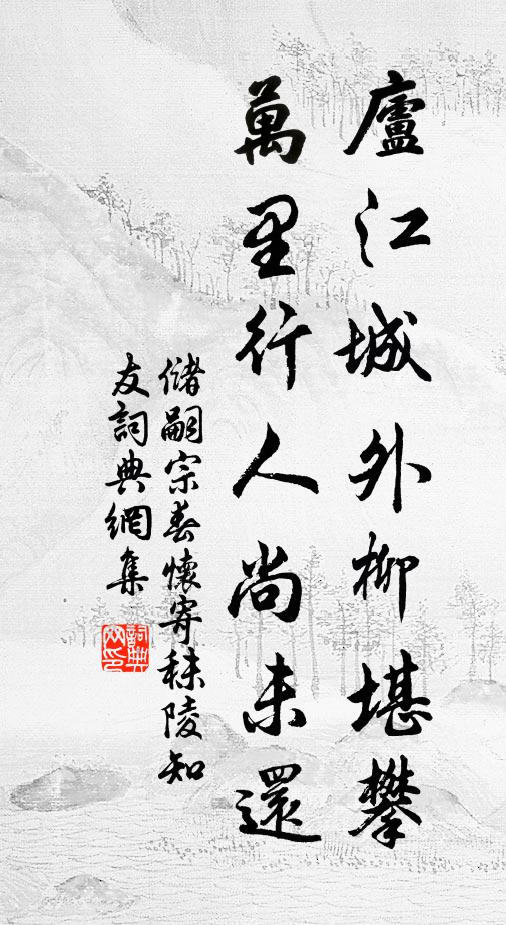 廬江城外柳堪攀
萬里行人尚未還
儲嗣宗春懷寄秣陵知
友詞典網集
詞典
网印